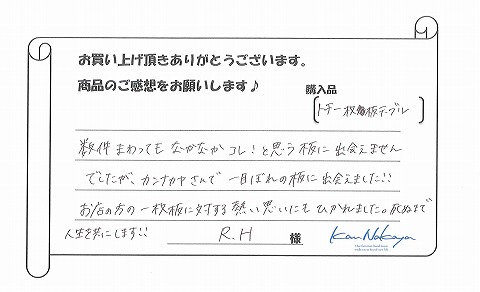 お買い上げ頂きありがとうございます。
商品のご感想をお願いします♪
購入品
トチ一枚板テーブル
数件まわってもなかなかコレ!と思う板に出会えません
でしたが、カンナカヤさんで一目ぼれの板に出会えました!!
お店の方の一枚板に対する熱い思いにもひかれました。死ぬまで
人生を共にします!!
R.H 様
KanNakaya